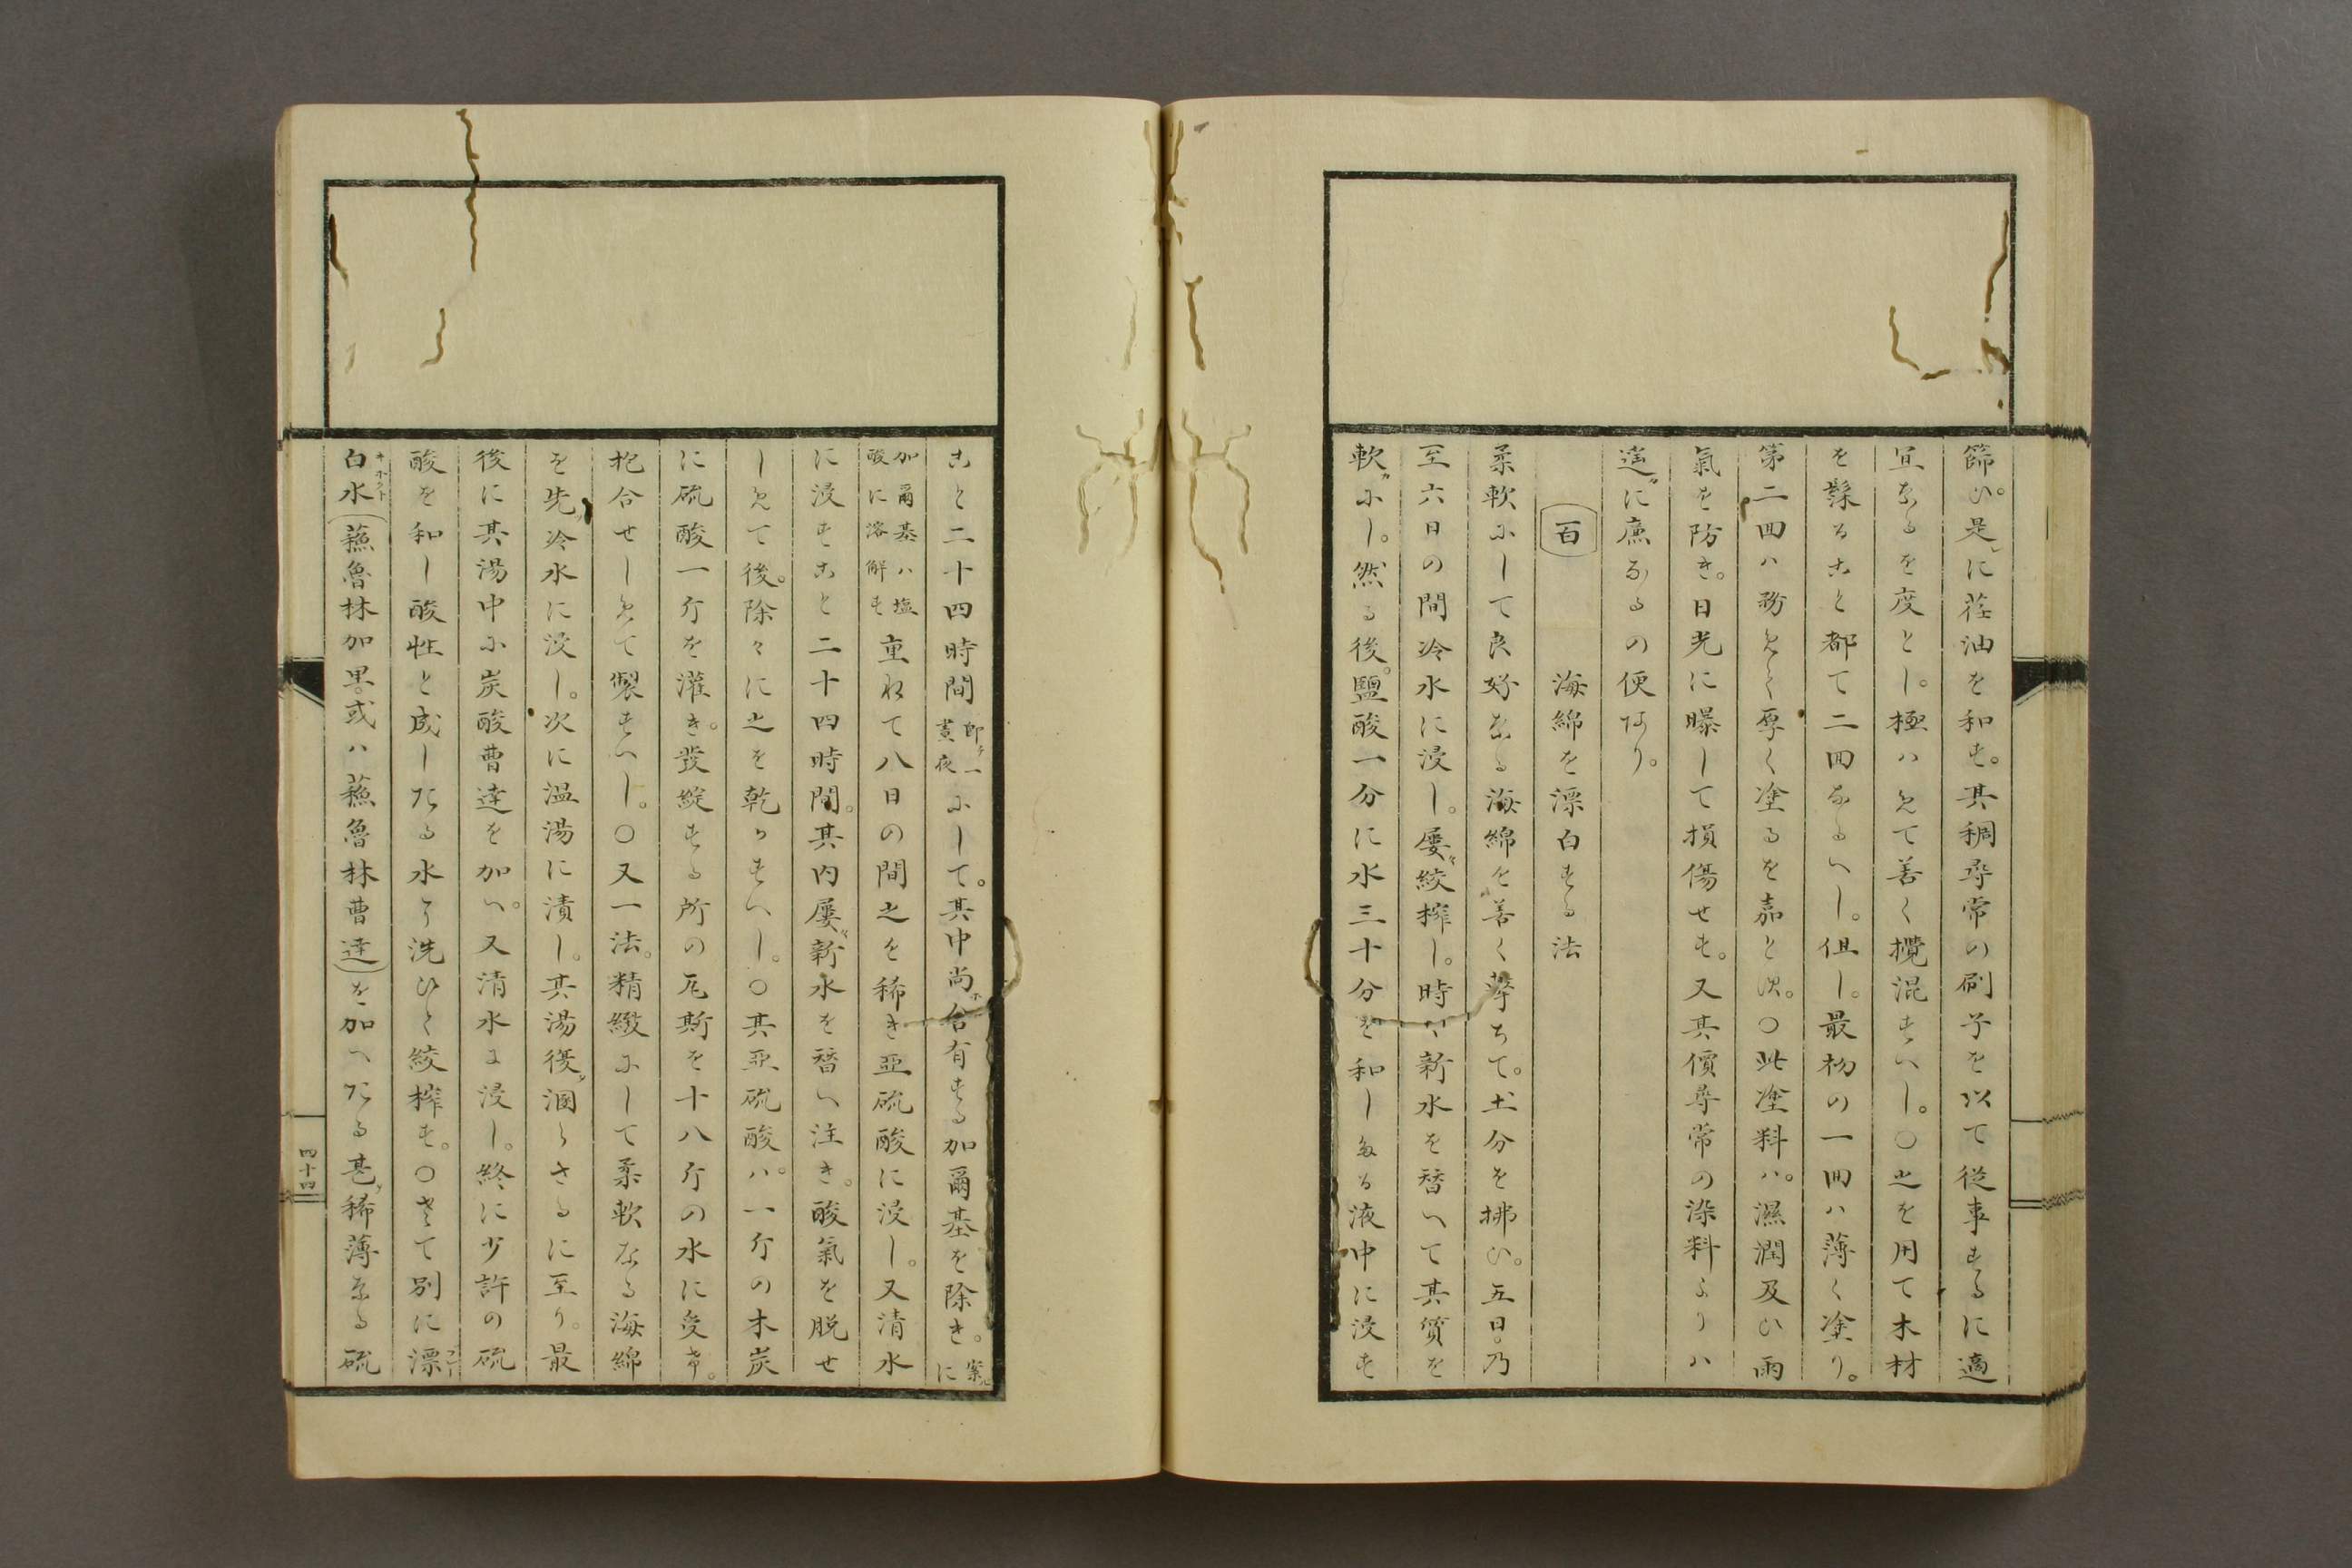 篩ひ。是に荏油を和す。其稠尋常の刷子を以て従事するに適
宜なるを度とし。極ハめて善く攪混すへし。〇之を用て木材
を髹ること都て二回なるへし。但し。最初の一回ハ薄く塗り。
第二回ハ務めて厚く塗るを嘉とす。〇此塗料ハ。濕潤及ひ雨
氣を防き。日光に曝して損傷せす。又其價尋常の染料よりハ
遙に廉なるの便あり。
百　海綿を漂白する法
柔軟にして良好なる海綿を善く撃ちて。土分を拂ひ。五日。乃
至六日の間冷水に浸し。屡〻絞搾し。時〻新水を替へて其質を
軟にし。然る後。鹽酸一分に水三十分を和したる液中に浸す
こと二十四時間即チ一晝夜にして。其中尚ホ含有する加爾基を除き。案スルに
加爾基ハ塩酸に溶解す重ねて八日の間之を稀き亞硫酸に浸し。又清水
に浸すこと二十四時間。其内屡〻新水を替へ注き。酸氣を脱せ
しめて後。除々に之を乾かすへし。〇其亞硫酸ハ。一斤の木炭
に硫酸一斤を灌き。發綻する所の瓦斯を十八斤の水に受け。
抱合せしめて製すへし。〇又一法。精緻にして柔軟なる海綿
を先ツ冷水に浸し。次に温湯に漬し。其湯復タ溷らさるに至り。最
後に其湯中に炭酸曹達を加へ。又清水に浸し。終に少許の硫
酸を和し酸性と成したる水にて洗ひて絞搾す。〇さて別に漂
白水(蘓魯林加里。或ハ蘓魯林曹達)を加へたる甚タ稀薄なる硫
四十四